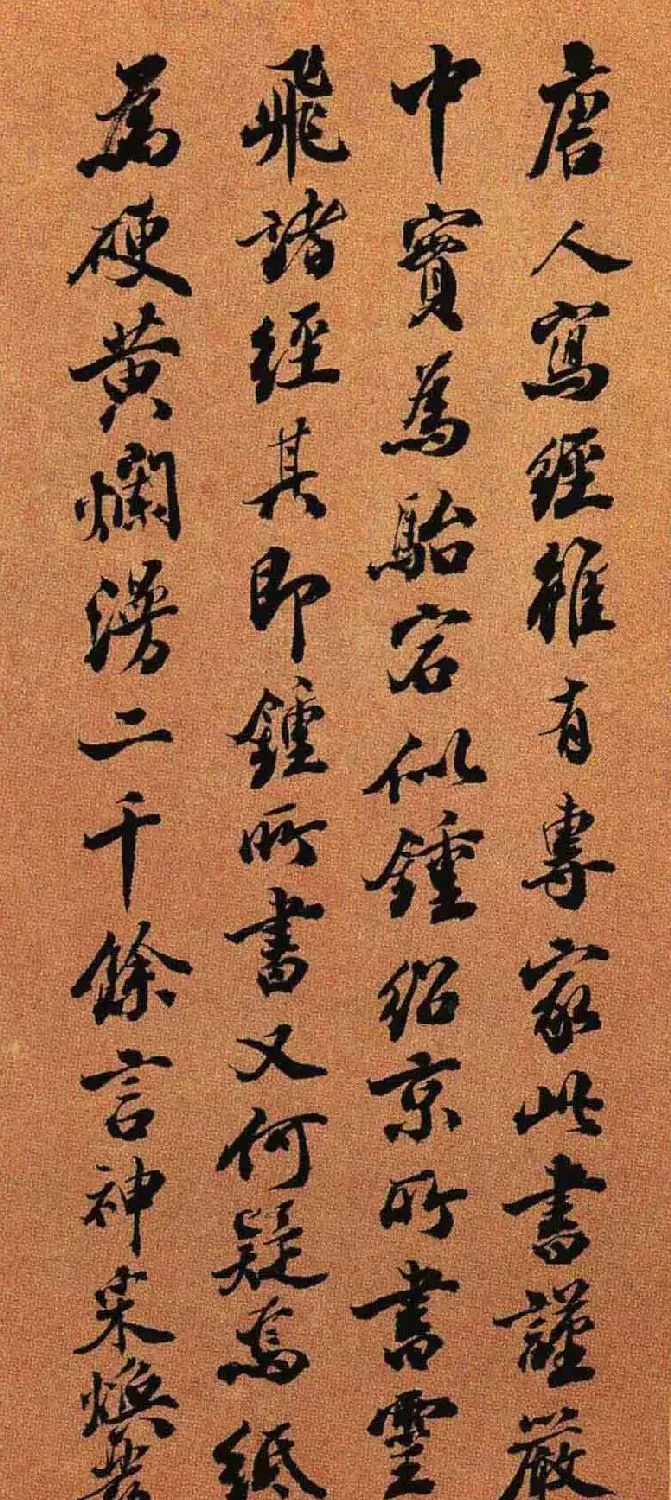 唐人寫經雖有專家此書謹嚴
中實為駘宕似鍾紹京所書靈
飛諸經其即鍾所書又何疑焉紙
為硬黃爛漫二千餘言神采煥